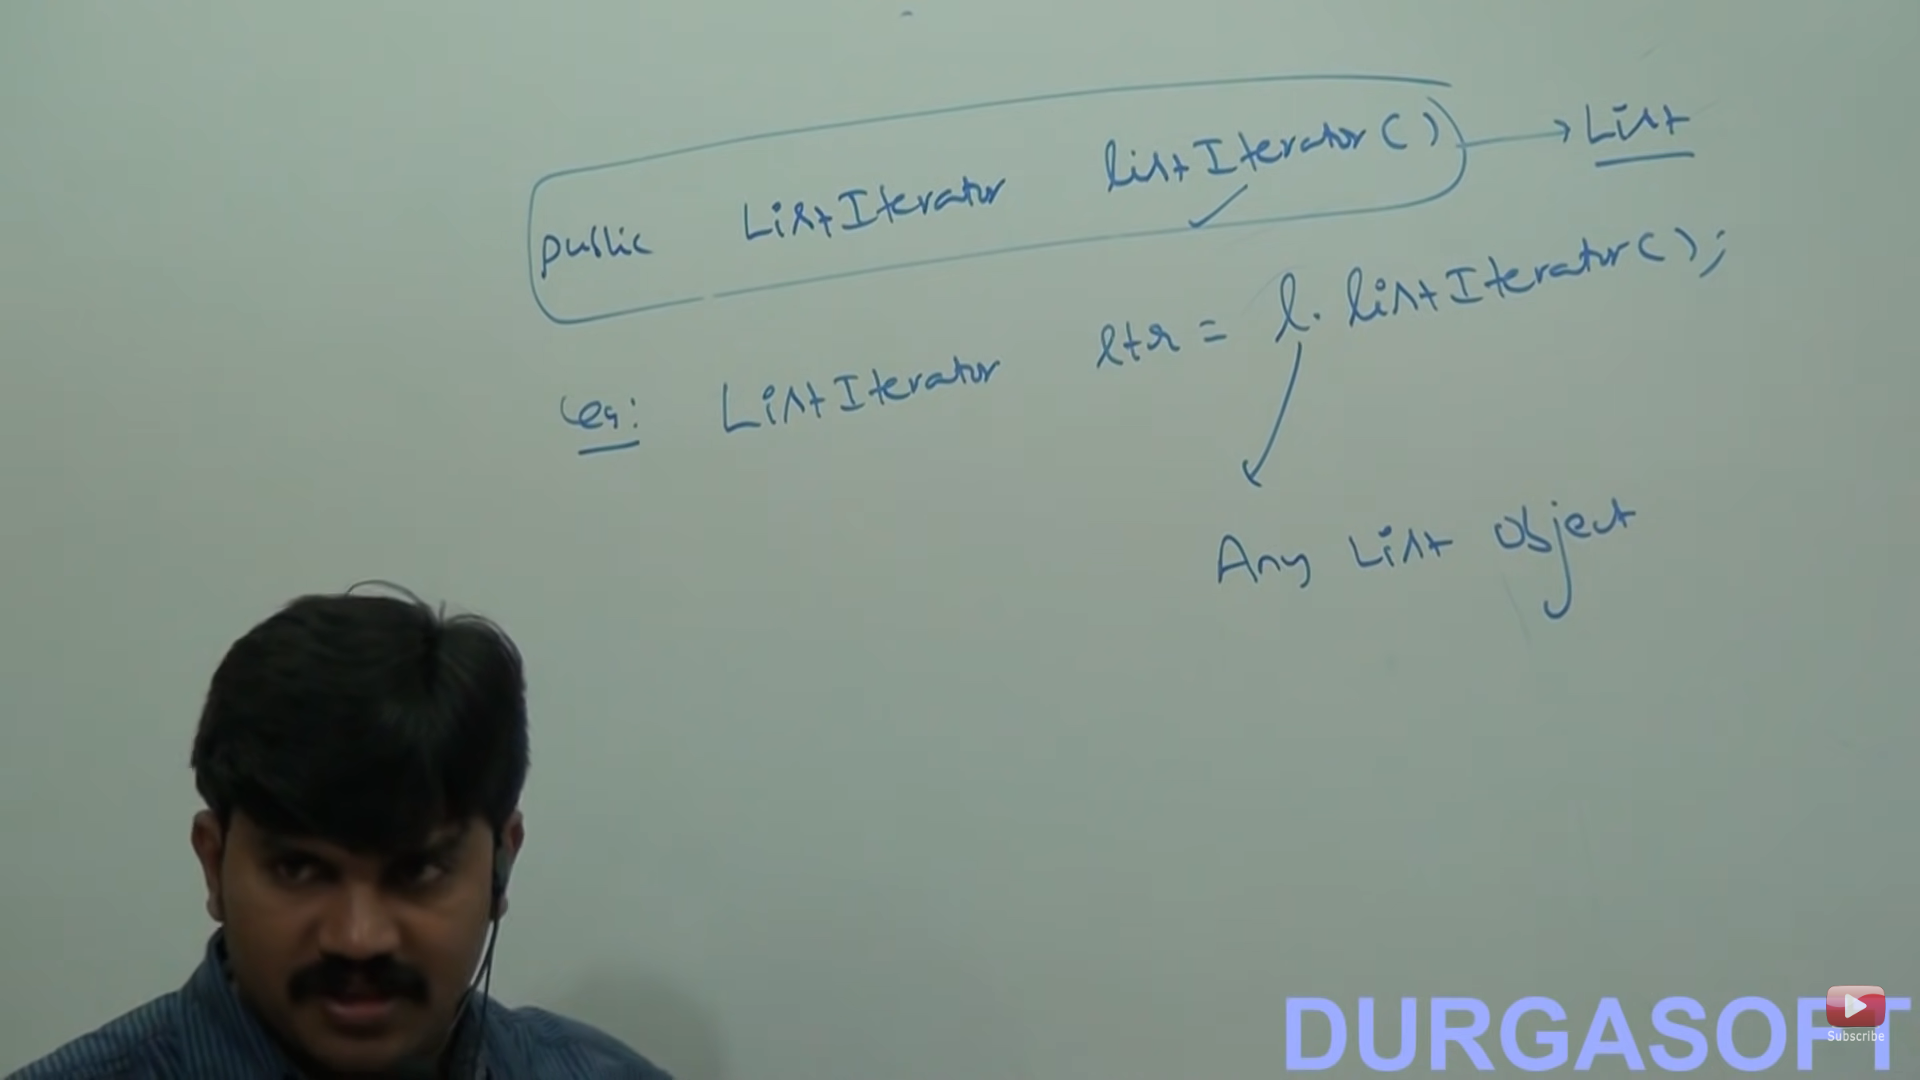 public ListIterator listIterator() → List
eg: ListIterator ltr = l.listIterator();
Any List object
DURGASOFT
Subscribe